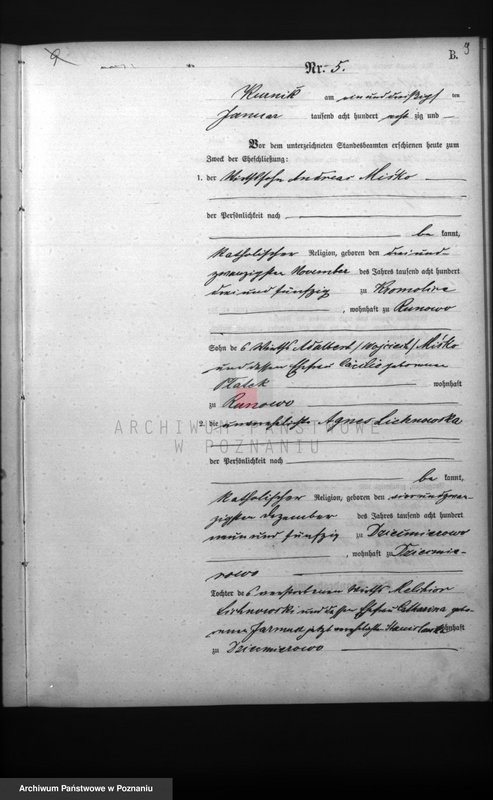 9
B.
9
Nr. 5.
Kurnik am ein und dreißigsten
Januar tausend acht hundert acht zig und —
Vor dem unterzeichneten Standesbeamten erschienen heute zum
Zweck der Eheschließung:
1. der Wirthssohn Andreas Miśko
der Persönlichkeit nach
be kannt,
katholischer Religion, geboren den drei und
zwanzigsten November des Jahres tausend acht hundert
drei und fünfzig zu Kromolice
, wohnhaft zu Runowo
Sohn des Wirths Adalbert /Wojciech/ Miśko
und dessen Ehefrau Cäcilie geborenen
Ratak wohnhaft
zu Runowo
2. die unverehelichte Agnes Lichnowska
ARCHIWUM PAŃSTWOWE
W POZNANIU
der Persönlichkeit nach
be kannt,
katholischer Religion, geboren den vier und zwan-
zigsten Dezember des Jahres tausend acht hundert
neun und fünfzig zu Dziećmierowo
, wohnhaft zu Dziećmie-
rowo
Tochter des verstorbenen Wirths Melchior
Lichnowski und dessen Ehefrau Catharina gebo-
renen jetzt verehelichten wohnhaft
zu Dziećmierowo
Archiwum Państwowe w Poznaniu